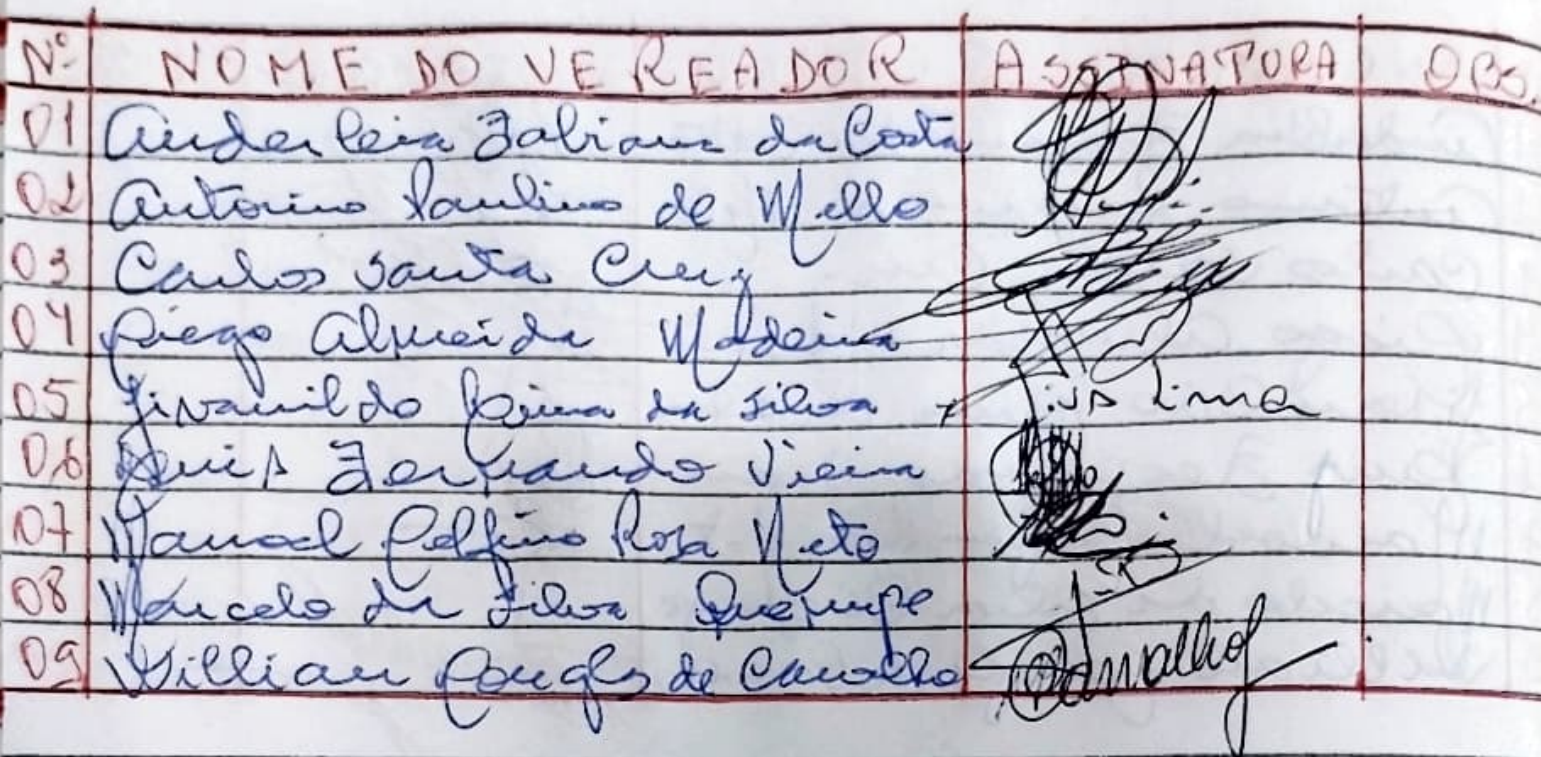 Nº NOME DO VEREADOR ASSINATURA OBS.
01 Anderleia Fabiana da Costa
02 Antonino Paulino de Mello
03 Carlos Santa Cruz
04 Diego Almeida Madeira
05 Jivanildo da Silva Jiva Lima
06 Luis Fernando Vieira
07 Manoel Delfino Rosa Neto
08 Marcelo da Silva
09 Willian Douglas de Carvalho Carvalho